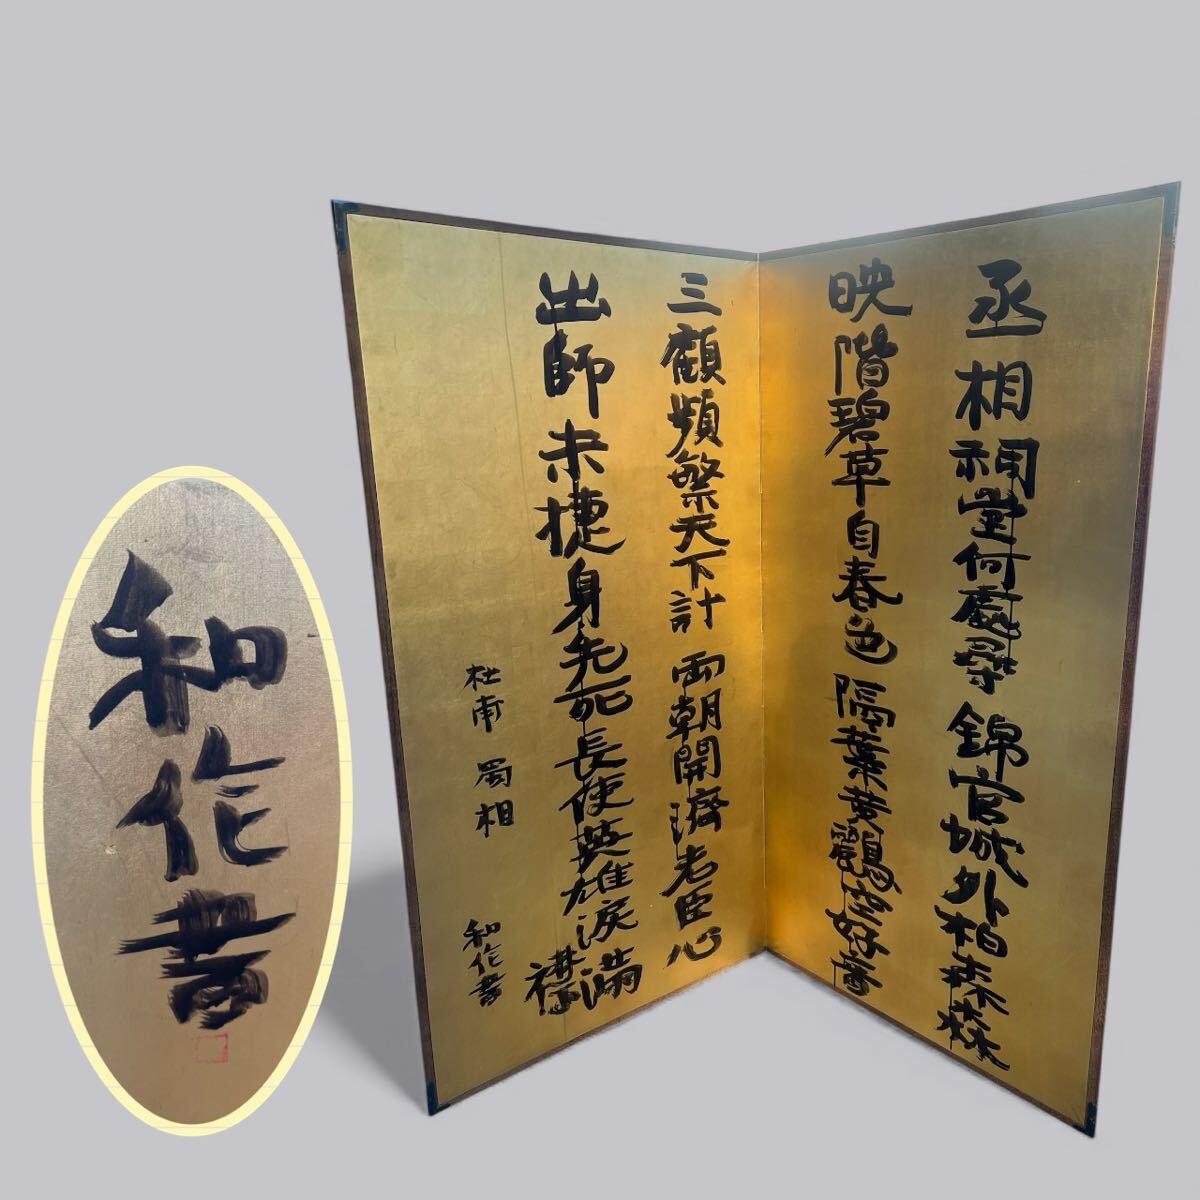 丞相祠堂何處尋錦官城外柏森森
映階碧草自春色隔葉黄鸝空好音
三顧頻繁天下計両朝開濟老臣心
出師未捷身先死長使英雄涙満襟
杜甫 蜀相
和作書
和作書